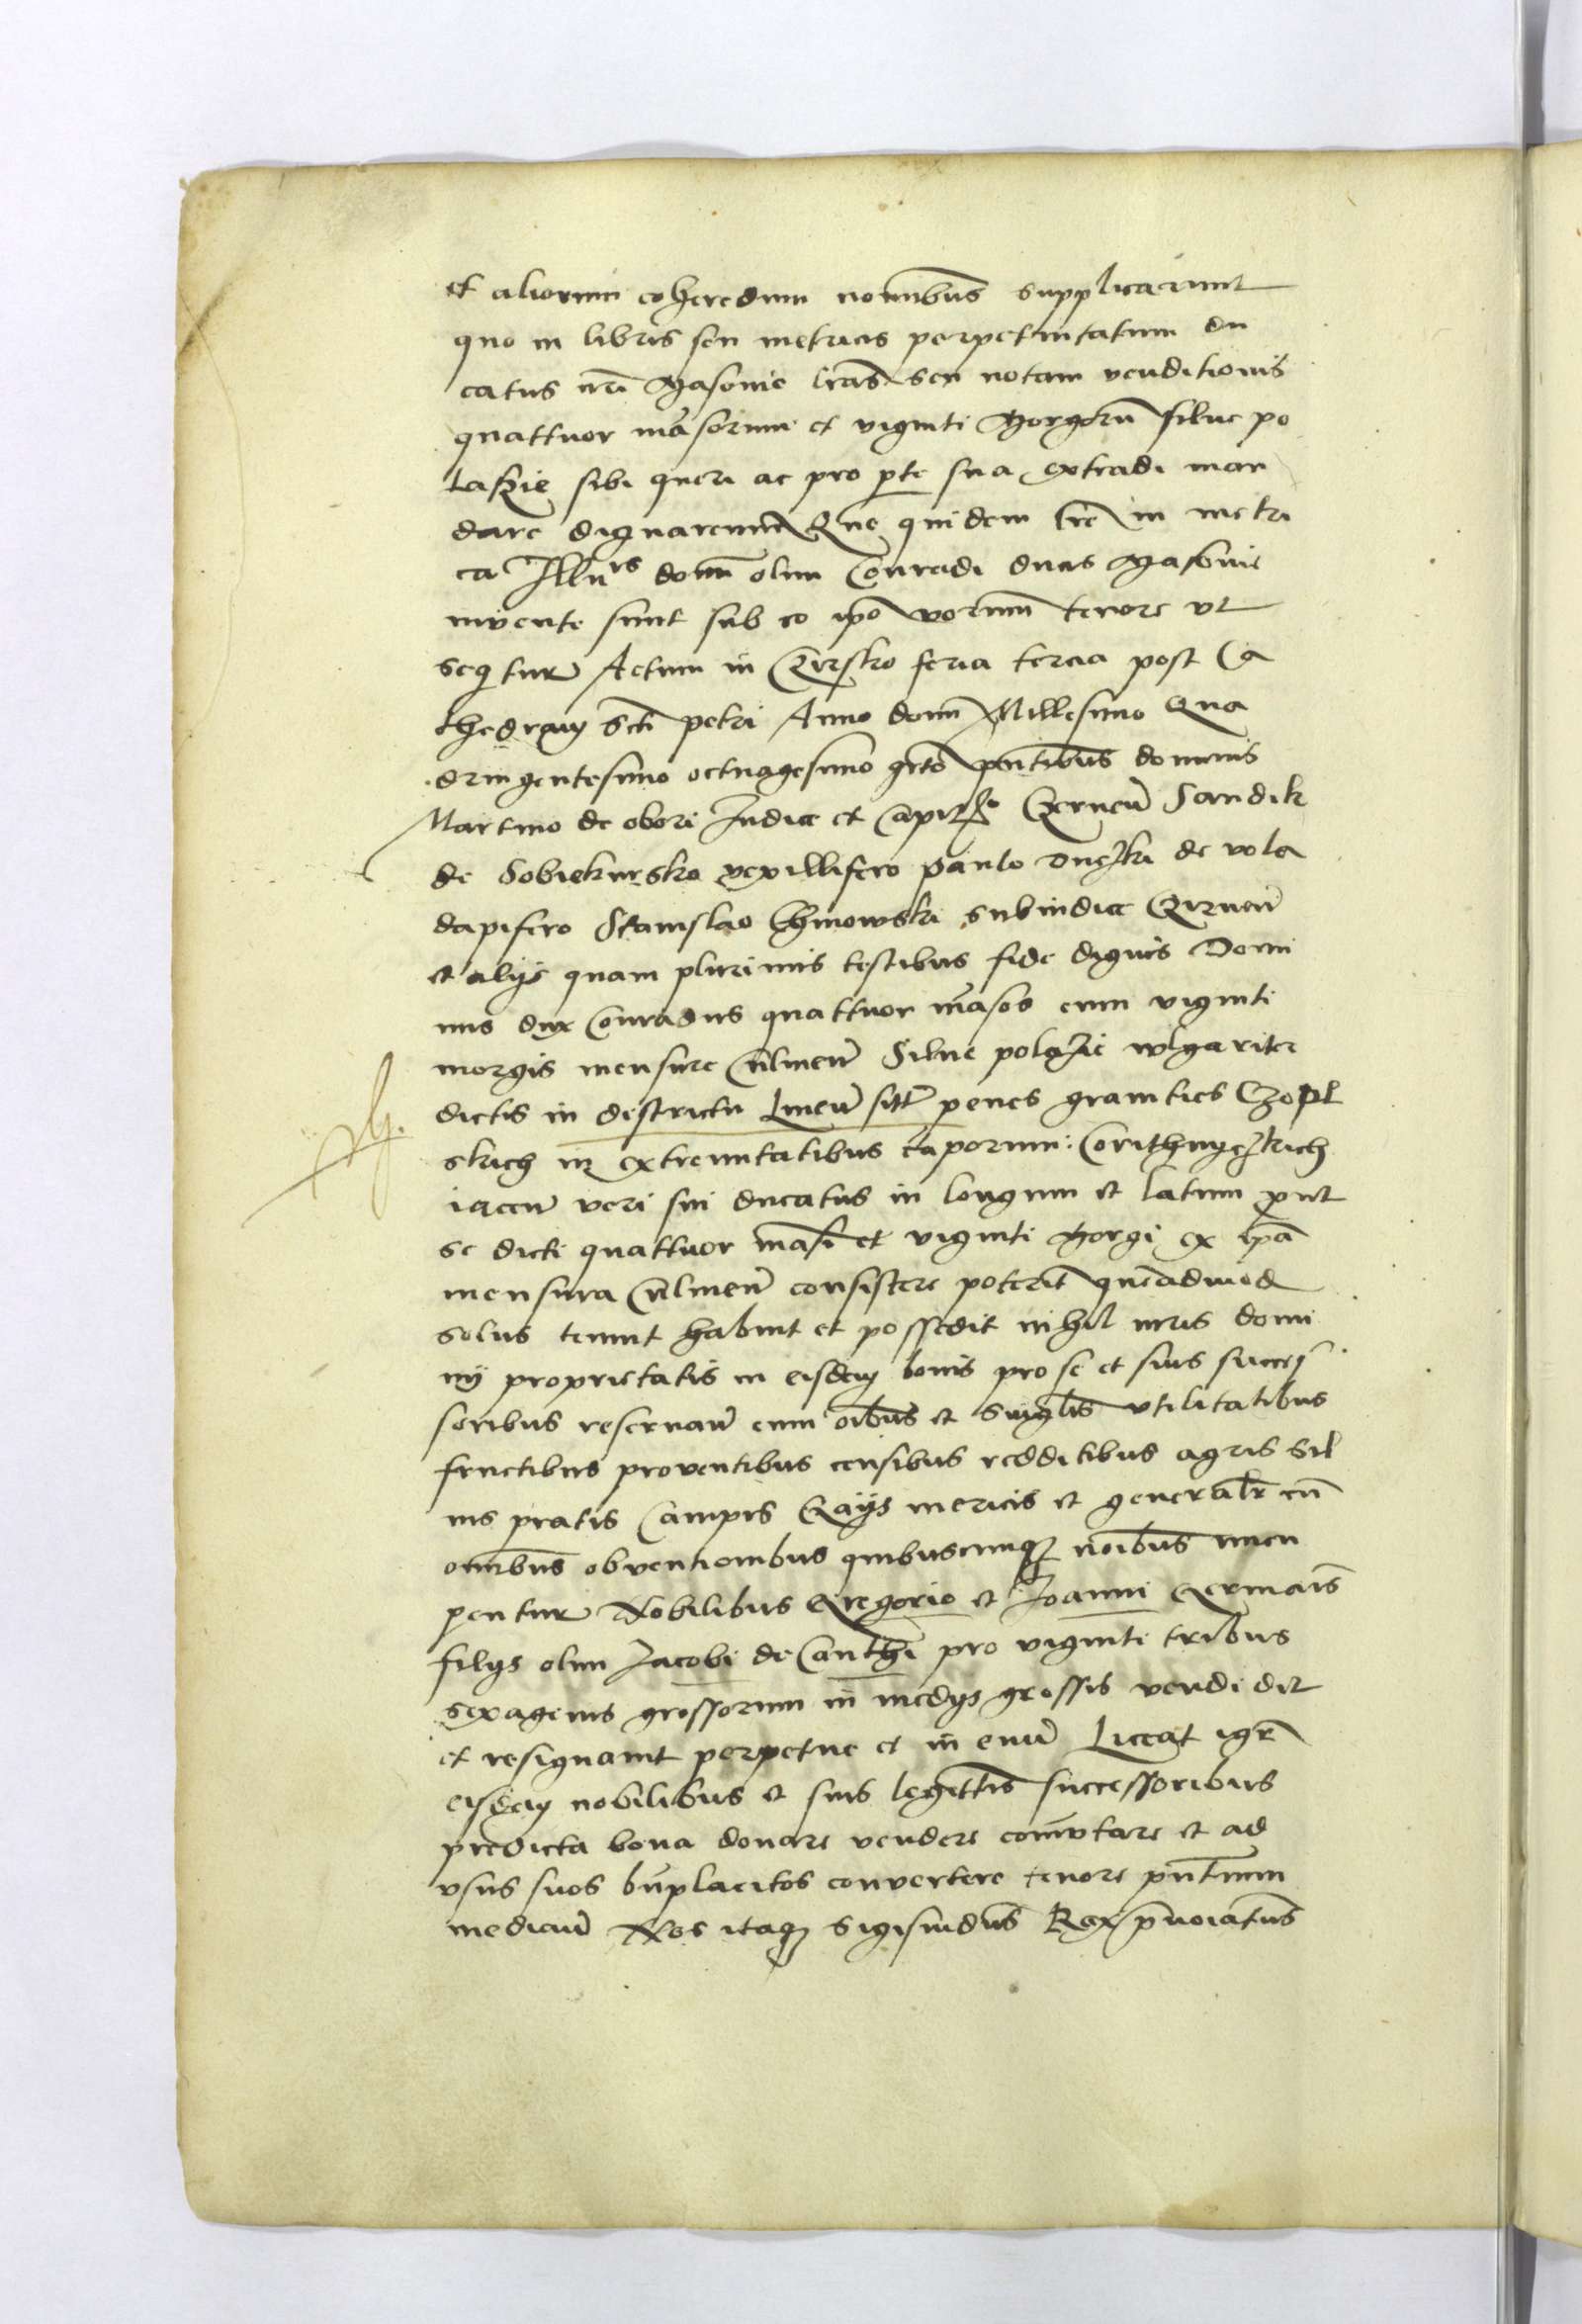 et aliorum coheredum nominibus supplicarunt
quo in libris seu metricis perpetuitatum du
catus nri Masovie lras seu notam venditionis
quattuor mãsorum et viginti Morgorũ silve po
lazie sibi queri ac pro pte sua extradi man
dare dignaremur Que quidem lre in metri
ca Illuris domi olim Conradi ducis Masovie
invente sunt sub eo ipo verum tenore ut
sequitur Actum in Czirsko feria tercia post Ca
thedram Scti petri Anno domi Millesimo Qua
dringentesimo octuagesimo pntibus dominis
Martino de obori Judice et Czernen Sandik
de Sobiekursko vexillifero paulo de vola
dapifero Stanislao subiudice Czirnen
et alijs quam plurimis testibus fide dignis Domi
nus dux Conradus quattuor mãsos cum viginti
morgis mensure Culmen Silve polazie wlgariter
dictis in districtu Liuen sitis penes granities
in extremitatibus
iacen veri sui ducatus in longum et latum put
se dicti quattuor mãsi et viginti Morgi ex ipa
mensura Culmen consistere poterit quẽadmod
solus tenuit habuit et possedit nihil iuris domi
nij proprietatis in eisdem bonis pro se et suis succes
soribus reservan cum oibus et singlis utilitatibus
fructibus proventibus censibus redditibus agris sil
vis pratis Campis Gays mericis et generalr cũ
omibus obventionibus quibuscunq noibus nuncu
pentur Nobilibus Gregorio et Joanni Germanis
filijs olim Jacobi de pro viginti tribus
sexagenis grossorum in medijs grossis vendidit
et resignavit perpetue et in evu Liceat igr
eisdem nobilibus et suis legittis successoribus
predicta bona donare vendere comutare et ad
usus suos bnplacitos convertere tenore pntium
median Nos itaq Sigismdus Rex pnoiatus